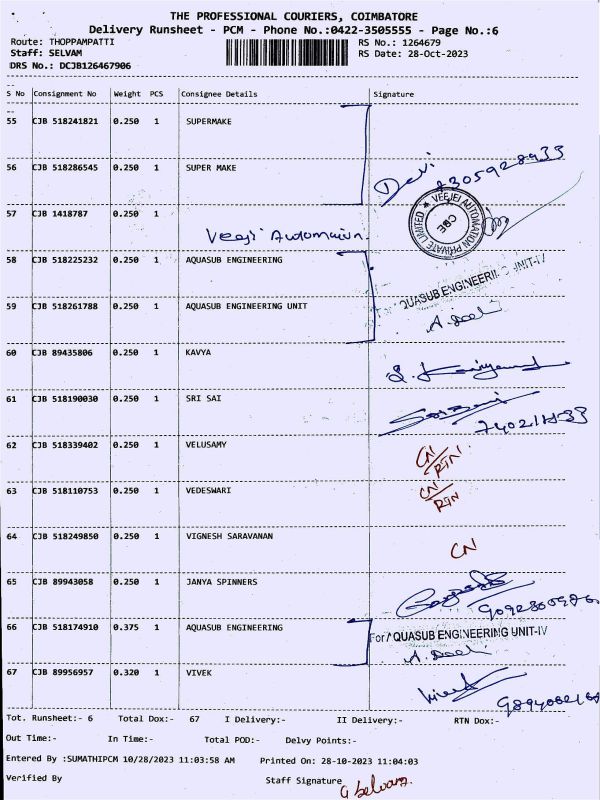 THE PROFESSIONAL COURIERS, COIMBATORE
Delivery Runsheet - PCM - Phone No.:0422-3505555 - Page No.:6
Route: THOPPAMPATTI RS No.: 1264679
Staff: SELVAM RS Date: 28-Oct-2023
DRS No.: DCJB126467906
S No Consignment No Weight PCS Consignee Details Signature
55 CJB 518241821 0.250 1 SUPERMAKE
56 CJB 518286545 0.250 1 SUPER MAKE
Devi
57 CJB 1418787 0.250 1
Veeji Automation
VEEJEI AUTOMATION PRIVATE LIMITED ★ CBE
58 CJB 518225232 0.250 1 AQUASUB ENGINEERING
QUASUB ENGINEERING UNIT-IV
59 CJB 518261788 0.250 1 AQUASUB ENGINEERING UNIT
60 CJB 89435806 0.250 1 KAVYA
61 CJB 518190030 0.250 1 SRI SAI
62 CJB 518339402 0.250 1 VELUSAMY
CN/RTN
63 CJB 518110753 0.250 1 VEDESWARI
CN/RTN
64 CJB 518249850 0.250 1 VIGNESH SARAVANAN
CN
65 CJB 89943058 0.250 1 JANYA SPINNERS
66 CJB 518174910 0.375 1 AQUASUB ENGINEERING
For AQUASUB ENGINEERING UNIT-IV
67 CJB 89956957 0.320 1 VIVEK
Vivek
Tot. Runsheet:- 6 Total Dox:- 67 I Delivery:- II Delivery:- RTN Dox:-
Out Time:- In Time:- Total POD:- Delvy Points:-
Entered By :SUMATHIPCM 10/28/2023 11:03:58 AM Printed On: 28-10-2023 11:04:03
Verified By Staff Signature